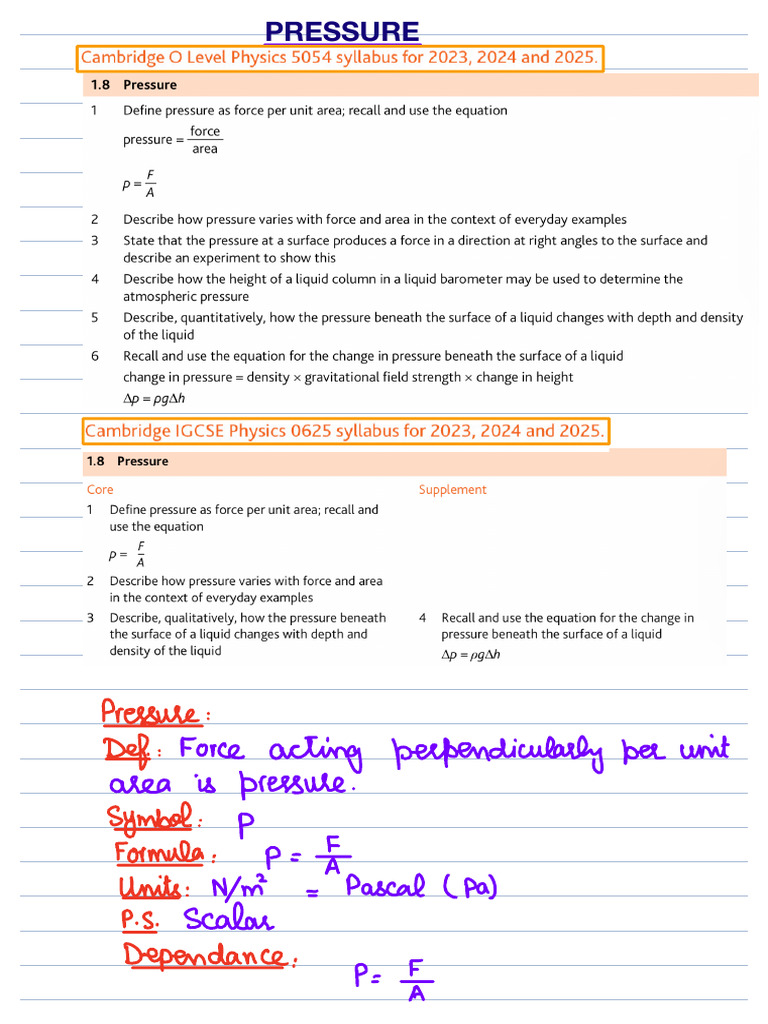 PRESSURE
Cambridge O Level Physics 5054 syllabus for 2023, 2024 and 2025.
1.8 Pressure
1 Define pressure as force per unit area; recall and use the equation
pressure = force / area
p = F / A
2 Describe how pressure varies with force and area in the context of everyday examples
3 State that the pressure at a surface produces a force in a direction at right angles to the surface and
describe an experiment to show this
4 Describe how the height of a liquid column in a liquid barometer may be used to determine the
atmospheric pressure
5 Describe, quantitatively, how the pressure beneath the surface of a liquid changes with depth and density
of the liquid
6 Recall and use the equation for the change in pressure beneath the surface of a liquid
change in pressure = density × gravitational field strength × change in height
Δp = ρgΔh
Cambridge IGCSE Physics 0625 syllabus for 2023, 2024 and 2025.
1.8 Pressure
Core
1 Define pressure as force per unit area; recall and
use the equation
p = F / A
2 Describe how pressure varies with force and area
in the context of everyday examples
3 Describe, qualitatively, how the pressure beneath
the surface of a liquid changes with depth and
density of the liquid
Supplement
4 Recall and use the equation for the change in
pressure beneath the surface of a liquid
Δp = ρgΔh
Pressure:
Def: Force acting perpendicularly per unit
area is pressure.
Symbol: P
Formula: P = F / A
Units: N/m² = Pascal (Pa)
P.S. Scalar
Dependance:
P = F / A